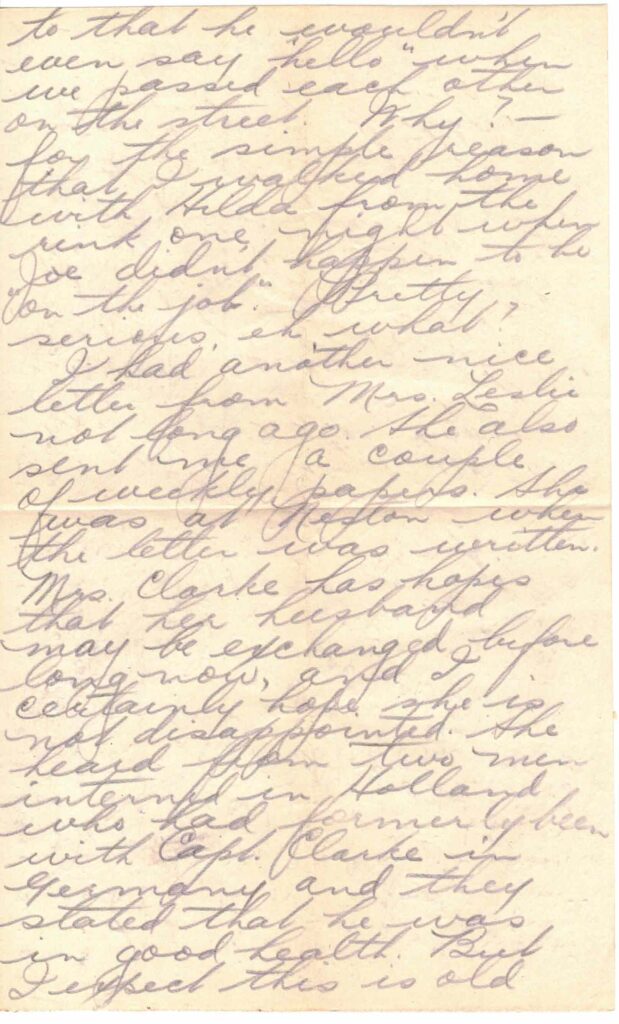 to that he wouldn't
even say "hello" when
we passed each other
on the street. Why? —
for the simple reason
that I walked home
with Hilda from the
rink one night when
Joe didn't happen to be
"on the job." Pretty
serious, eh what?
I had another nice
letter from Mrs. Leslie
not long ago. She also
sent me a couple
of weekly papers. She
was at Neston when
the letter was written.
Mrs. Clarke has hopes
that her husband
may be exchanged before
long now, and I
certainly hope she is
not disappointed. She
heard from two men
interned in Holland
who had formerly been
with Capt. Clarke in
Germany and they
stated that he was
in good health. But
I expect this is old